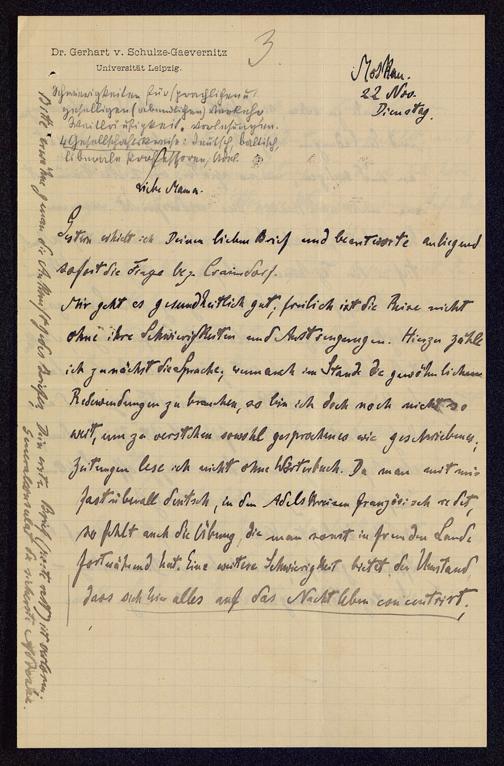 Dr. Gerhart v. Schulze-Gaevernitz
Universität Leipzig.
3
Moskau.
22 Nov.
Dienstag.
Schwierigkeiten für sprachlichen u.
geselligen (abendlichen) Verkehr
Weitläufigkeit, Vorlesungen.
4 Gesellschaftskreise: deutsch, baltisch,
liberale Professoren, Adel.
Liebe Mama.
Gestern erhielt ich Deinen lieben Brief und beantworte anliegend
sofort die Frage bez. Crainsdorf.
Mir geht es gesundheitlich gut; freilich ist die Reise nicht
ohne ihre Schwierigkeiten und Anstrengungen. Hierzu zähle
ich zunächst die Sprache; wenn auch im Stande die gewöhnlichen
Redewendungen zu brauchen, so bin ich doch noch nicht so
weit, um zu verstehen sowohl gesprochenes wie geschriebenes;
Zeitungen lese ich nicht ohne Wörterbuch. Da man mit mir
fast überall deutsch, in den Adelskreisen französisch redet,
so fehlt auch die Übung, die man sonst in fremden Lande
fortwährend hat. Eine weitere Schwierigkeit bietet der Umstand,
dass sich hier alles auf das Nachtleben concentrirt.
Bitte genau die
Dein erster Brief